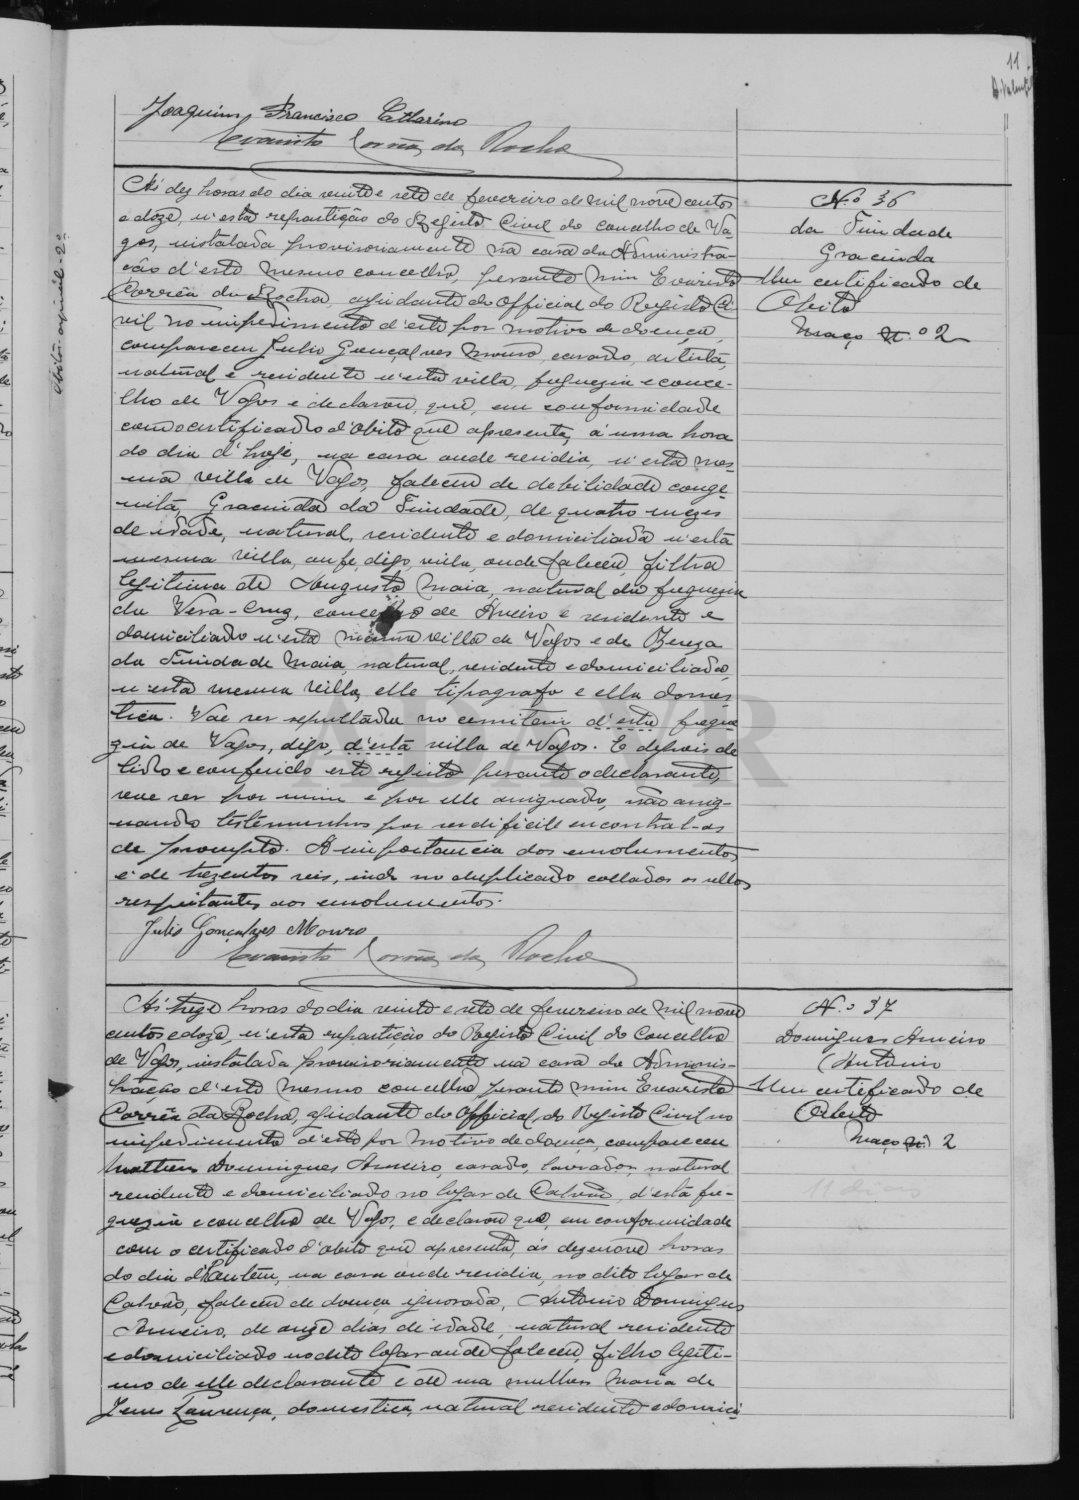 11
Joaquim Francisco Catharino
Evaristo Corrêa da Rocha
Ás dez horas do dia vinte e sete de fevereiro de mil nove centos
e doze, n'esta repartição do Registo Civil do concelho de Va-
gos, installada provisoriamente na casa da Administra-
ção d'este mesmo concelho, perante mim Evaristo
Corrêa da Rocha, ajudante do Official do Registo Ci-
vil no impedimento d'este por motivo de doença,
compareceu Julio Gonçalves Mouro, casado, artista,
natural e residente n'esta villa, freguezia e conce-
lho de Vagos e declarou, que, em conformidade
com o certificado d'obito que apresenta, á uma hora
do dia d'hoje, na casa onde residia, n'esta mes-
ma villa de Vagos, faleceu de debilidade conge-
nita, Gracinda da Trindade, de quatro mezes
de idade, natural, residente e domiciliada n'esta
mesma villa, onfe, digo, villa, onde faleceu, filha
legitima de Augusto Maia, natural da freguezia
da Vera-Cruz, concelho de Aveiro e residente e
domiciliado n'esta mesma villa de Vagos e de Thereza
da Trindade Maia, natural, residente e domiciliada
n'esta mesma villa, elle tipografo e ella domes-
tica. Vae ser sepultada no cemiterio d'esta fregue-
zia de Vagos, digo, d'esta villa de Vagos. E depois de
lido e conferido este registo perante o declarante,
vae ser por mim e por elle assignado, não assig-
nando testemunhas por ser dificil encontral-as
de prompto. A importancia dos emolumentos
é de trezentos reis, indo no duplicado collados os sellos
respeitantes aos emolumentos.
Julio Gonçalves Mouro
Evaristo Corrêa da Rocha
N.º 36
da Trindade
Gracinda
Um certificado de
Obito
Maço n.º 2
Ás treze horas do dia vinte e sete de fevereiro de mil nove
centos e doze, n'esta repartição do Registo Civil do Concelho
de Vagos, installada provisoriamente na casa da Adminis-
tração d'este mesmo concelho, perante mim Evaristo
Corrêa da Rocha, ajudante do Official do Registo Civil no
impedimento d'este por motivo de doença, compareceu
Matheus Domingues Arneiro, casado, lavrador, natural
residente e domiciliado no logar de Calvão, d'esta fre-
guezia e concelho de Vagos, e declarou que, em conformidade
com o certificado d'obito que apresenta, ás dezenove horas
do dia d'hontem, na casa onde residia, no dito logar de
Calvão, faleceu de doença ignorada, Antonio Domingues
Arneiro, de onze dias de idade, natural residente
e domiciliado no dito logar onde faleceu, filho legiti-
mo de elle declarante e de sua mulher Maria de
Jesus Lourença, domestica, natural residente e domici-
N.º 37
Domingues Arneiro
Antonio
Um certificado de
Obito
Maço n.º 2
11 dias
ADAVR